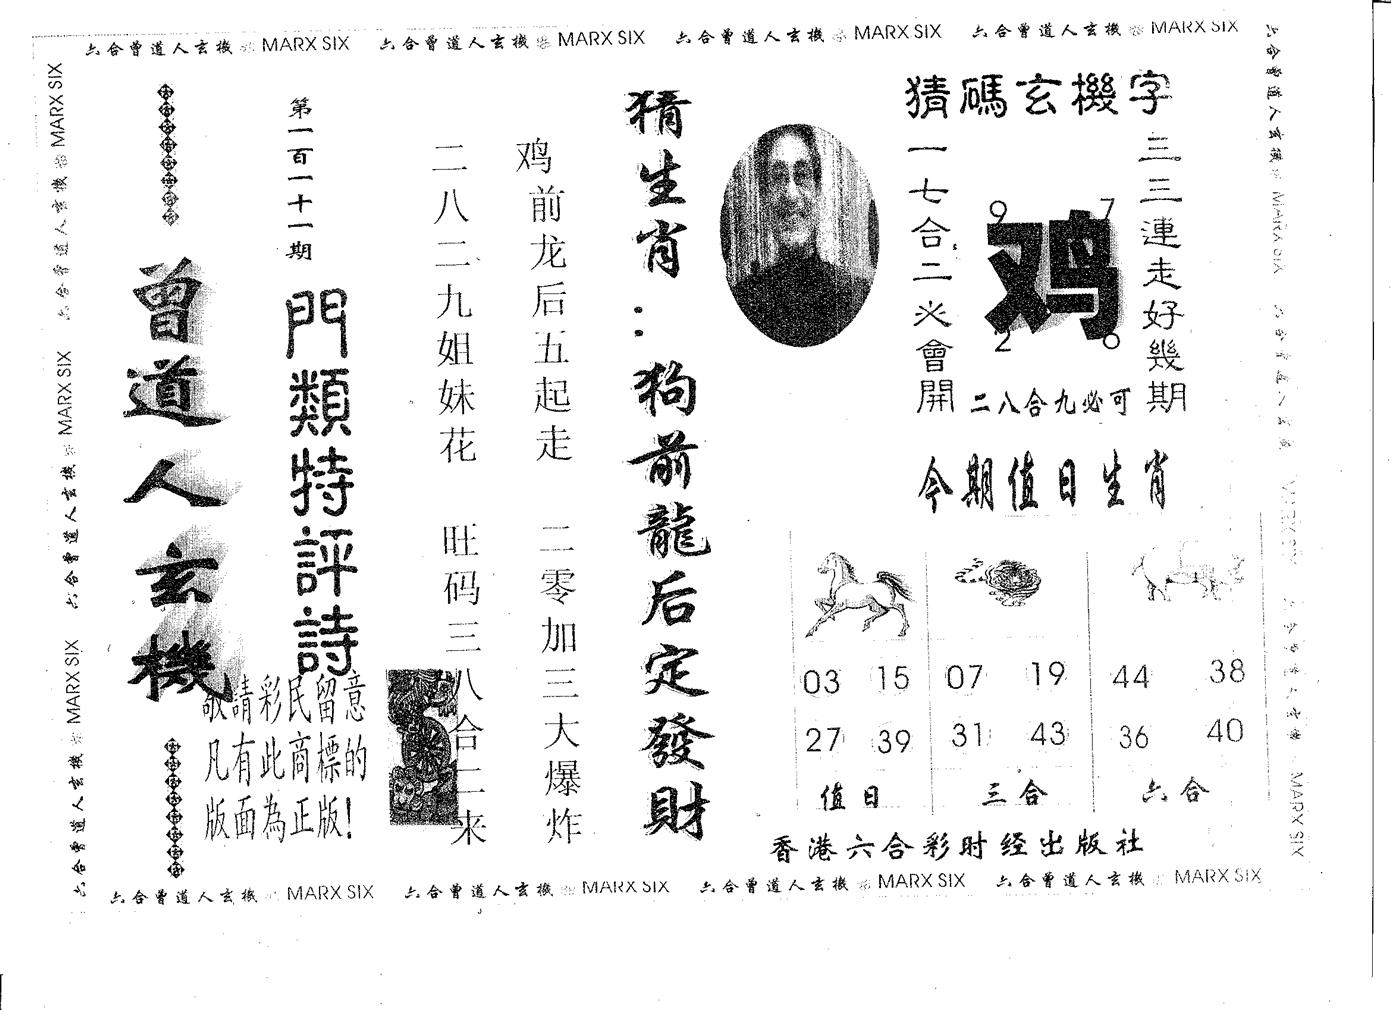 六合曾道人玄機 MARX SIX 六合曾道人玄機 MARX SIX 六合曾道人玄機 MARX SIX 六合曾道人玄機 MARX SIX
六合曾道人玄機 MARX SIX 六合曾道人玄機 MARX SIX 六合曾道人玄機 MARX SIX
曾道人玄機
第一百一十一期
門類特評詩
敬請彩民留意
凡有此商標的
版面為正版!
二八二九姐妹花 旺码三八合二来
鸡前龙后五起走 二零加三大爆炸
猜生肖:狗前龍后定發財
猜碼玄機字
一七合二必會開
9 7
鸡
2 6
二八合九必可
三三連走好幾期
今期值日生肖
03 15 07 19 44 38
27 39 31 43 36 40
值日 三合 六合
香港六合彩时经出版社
六合曾道人玄機 MARX SIX
六合曾道人玄機 MARX SIX 六合曾道人玄機 MARX SIX 六合曾道人玄機 MARX SIX 六合曾道人玄機 MARX SIX